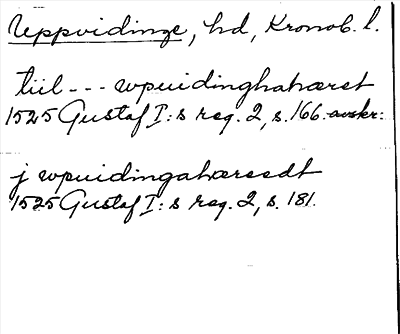 Uppvidinge, hd, Kronob. l.
tiil --- wpuidinghahæret
1525 Gustaf I:s reg. 2, s. 166. avskr:
j wpuidingahæreedt
1525 Gustaf I:s reg. 2, s. 181.